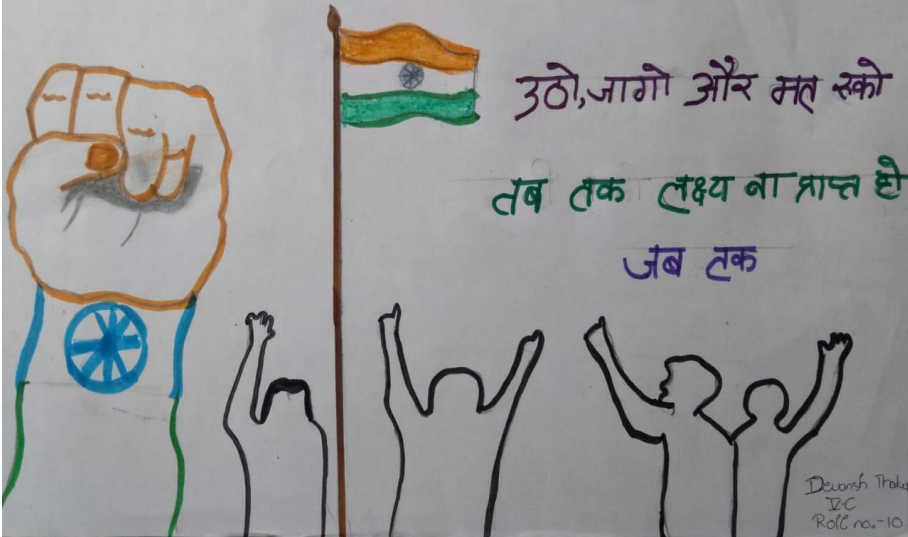 उठो,जागो और मत रुको
तब तक लक्ष्य ना प्राप्त हो
जब तक
Devansh
V-C
Roll no.-10